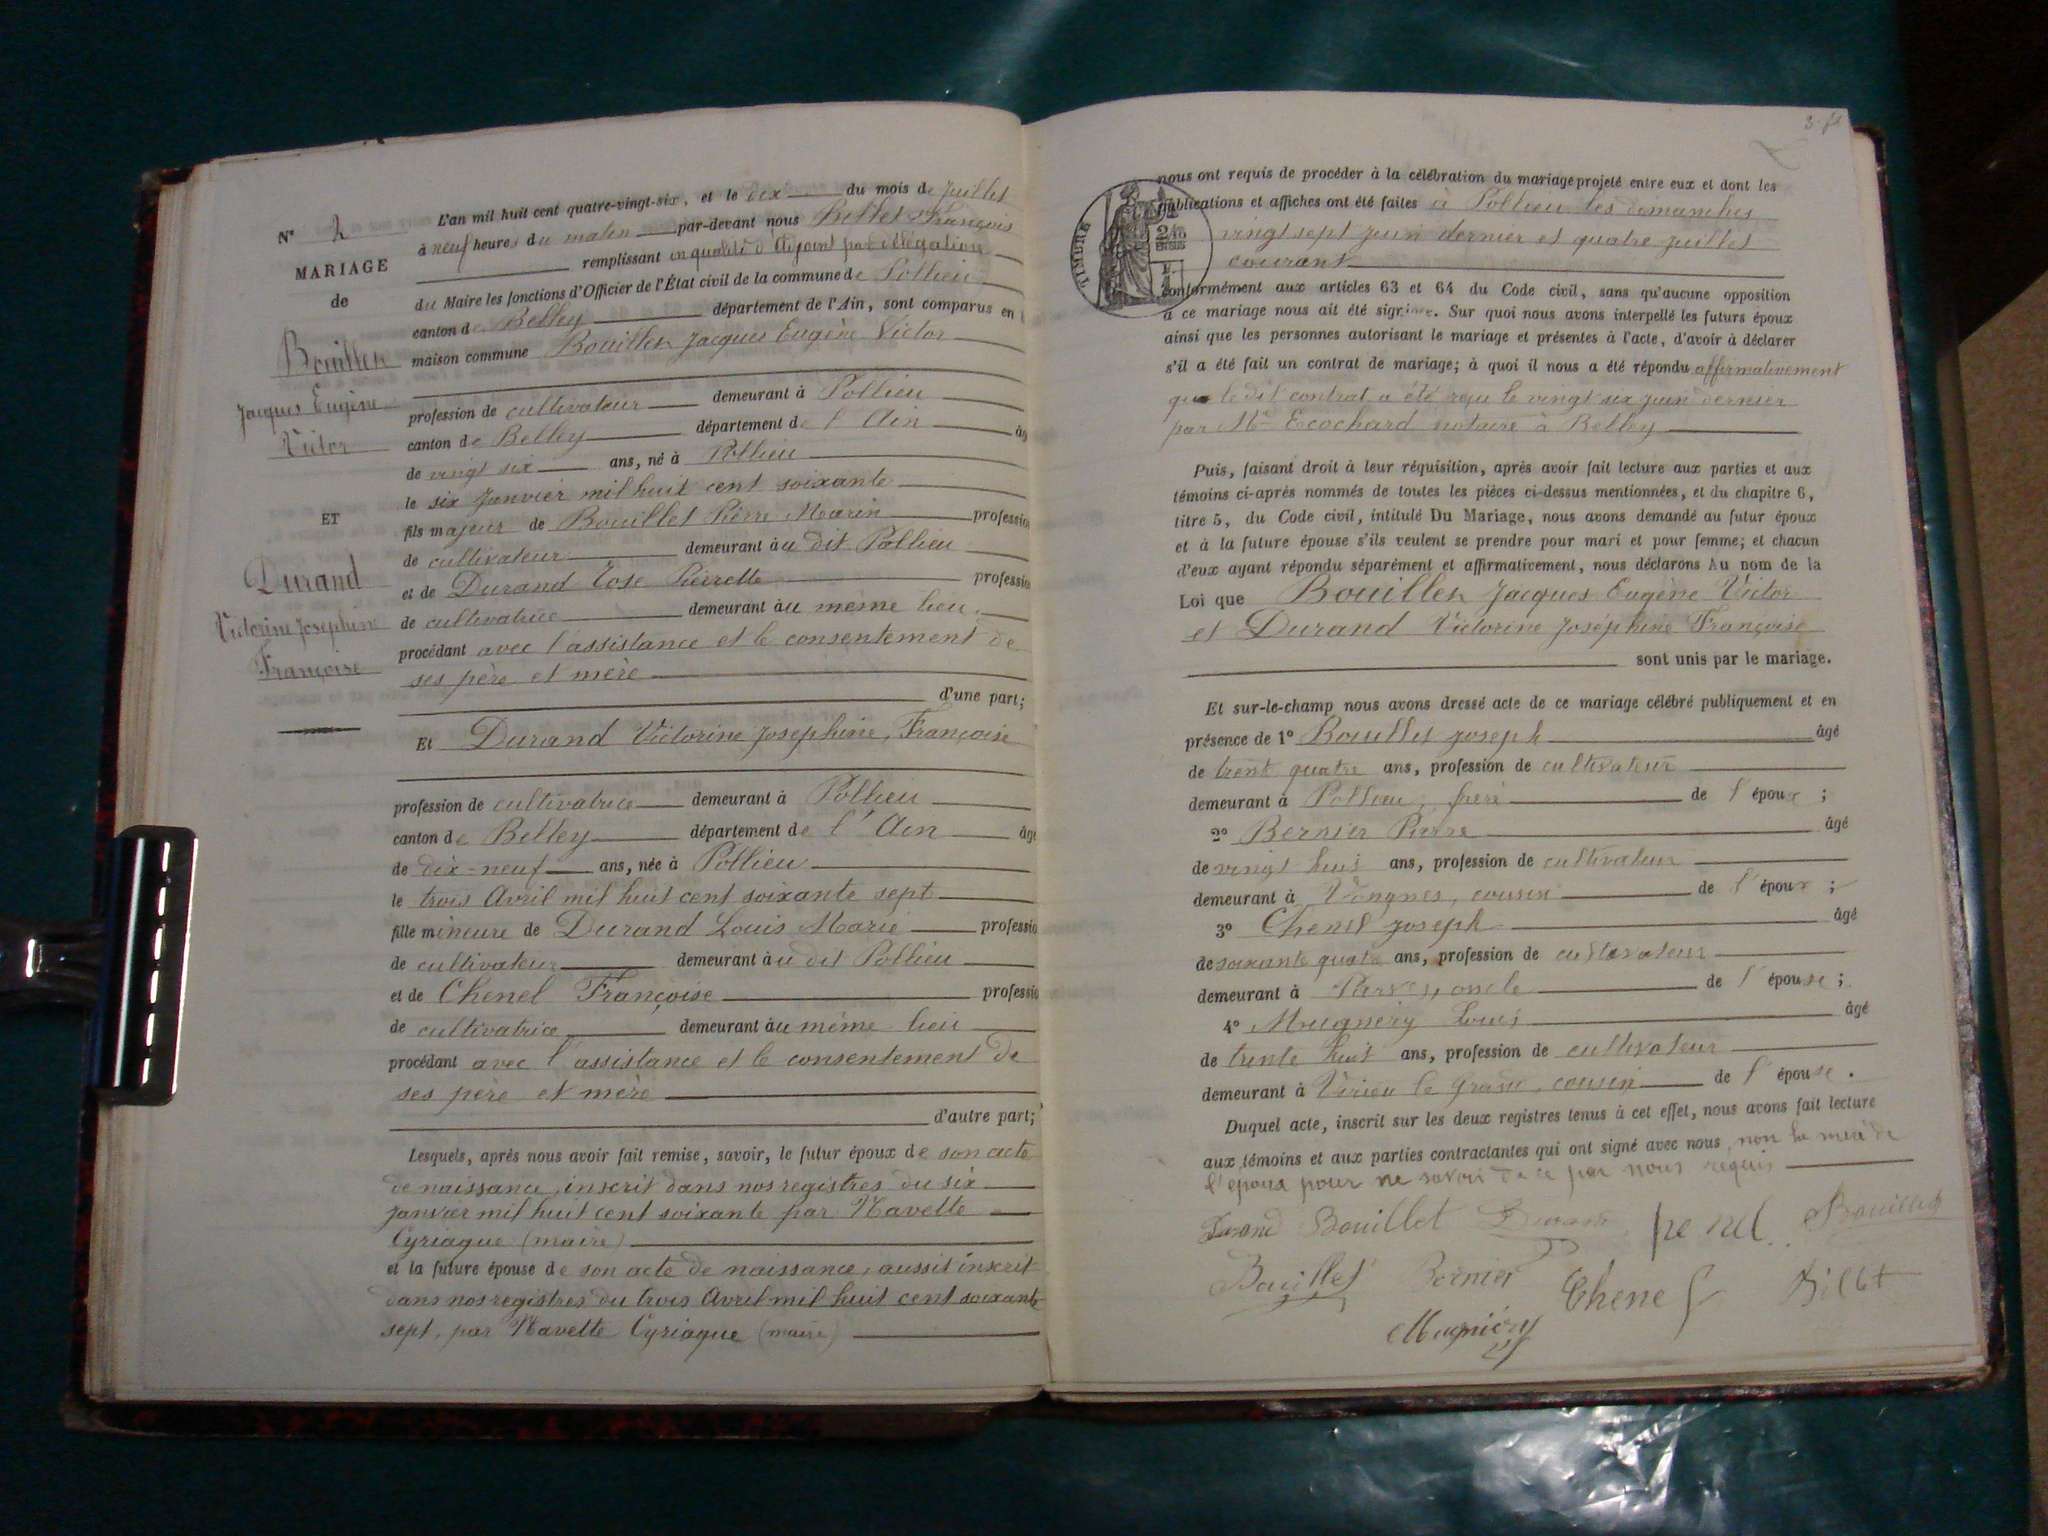 N° 2
MARIAGE
de
Bouillet
Jacques Eugène
Victor
ET
Durand
Victorine Joséphine
Françoise
L'an mil huit cent quatre-vingt-six, et le dix du mois de Juillet
à neuf heures du matin par-devant nous Billet François
remplissant en qualité d'Adjoint par délégation
du Maire les fonctions d'Officier de l'État civil de la commune de Pollieu
canton de Belley département de l'Ain, sont comparus en
maison commune Bouillet Jacques Eugène Victor
profession de cultivateur demeurant à Pollieu
canton de Belley département de l'Ain âg
de vingt six ans, né à Pollieu
le six Janvier mil huit cent soixante
fils majeur de Bouillet Pierre Marin profession
de cultivateur demeurant au dit Pollieu
et de Durand Rose Pierrette profession
de cultivatrice demeurant au même lieu
procédant avec l'assistance et le consentement de
ses père et mère
d'une part;
Et Durand Victorine Joséphine, Françoise
profession de cultivatrice demeurant à Pollieu
canton de Belley département de l'Ain âgé
de dix-neuf ans, née à Pollieu
le trois Avril mil huit cent soixante sept
fille mineure de Durand Louis Marie professio
de cultivateur demeurant au dit Pollieu
et de Chenel Françoise professio
de cultivatrice demeurant au même lieu
procédant avec l'assistance et le consentement de
ses père et mère
d'autre part;
Lesquels, après nous avoir fait remise, savoir, le futur époux de son acte
de naissance, inscrit dans nos registres du six
janvier mil huit cent soixante par Navette
Cyriaque (maire)
et la future épouse de son acte de naissance, aussi inscrit
dans nos registres du trois Avril mil huit cent soixante
sept, par Navette Cyriaque (maire)
3
TIMBRE
nous ont requis de procéder à la célébration du mariage projeté entre eux et dont les
publications et affiches ont été faites à Pollieu les dimanches
vingt sept juin dernier et quatre juillet
courant
conformément aux articles 63 et 64 du Code civil, sans qu'aucune opposition
à ce mariage nous ait été signifiée. Sur quoi nous avons interpellé les futurs époux
ainsi que les personnes autorisant le mariage et présentes à l'acte, d'avoir à déclarer
s'il a été fait un contrat de mariage; à quoi il nous a été répondu affirmativement
que le dit contrat a été reçu le vingt six juin dernier
par Me Ecochard notaire à Belley
Puis, faisant droit à leur réquisition, après avoir fait lecture aux parties et aux
témoins ci-après nommés de toutes les pièces ci-dessus mentionnées, et du chapitre 6,
titre 5, du Code civil, intitulé Du Mariage, nous avons demandé au futur époux
et à la future épouse s'ils veulent se prendre pour mari et pour femme; et chacun
d'eux ayant répondu séparément et affirmativement, nous déclarons Au nom de la
Loi que Bouillet Jacques Eugène Victor
et Durand Victorine Joséphine Françoise
sont unis par le mariage.
Et sur-le-champ nous avons dressé acte de ce mariage célébré publiquement et en
présence de 1° Bouillet Joseph âgé
de trent quatre ans, profession de cultivateur
demeurant à Pollieu, frère de l'époux ;
2° Bernier Pierre âgé
de vingt huit ans, profession de cultivateur
demeurant à Vongnes, cousin de l'époux ;
3° Chenel Joseph âgé
de soixante quatre ans, profession de cultivateur
demeurant à Parves, oncle de l'épouse ;
4° Mugnery Louis âgé
de trente huit ans, profession de cultivateur
demeurant à Virieu le Grand, cousin de l'épouse.
Duquel acte, inscrit sur les deux registres tenus à cet effet, nous avons fait lecture
aux témoins et aux parties contractantes qui ont signé avec nous, non la mère de
l'époux pour ne savoir de ce par nous requis
Durand Bouillet Durand Bouillet
Bouillet Bernier Chenel Billet
Mugniéry